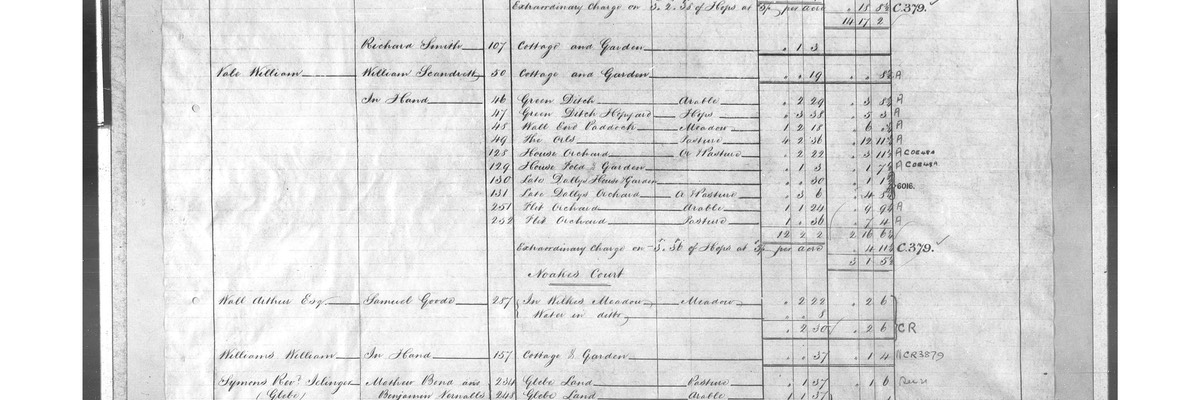 Extraordinary Charge on 3. 2. 38 of Hops at 3/- per acre . 18 8½ C.379. ✓
14 17 2
Richard Smith 107 Cottage and Garden . 1 3
Vale William William Scandrett 50 Cottage and Garden . . 19 . . 8½ A
In Hand 46 Green Ditch Arable . 2 29 . 3 8½ A
47 Green Ditch Hopyard Hops . 3 38 . 5 3 A
48 Wall End Paddock Meadow 1 2 18 . 6 A
49 The Orls Pasture 4 2 36 . 12 11½ A
128 House Orchard Or Pasture . 2 22 . 3 11½ A COBWSA
129 House Fold & Garden . 1 3 . 1 7½ A COBWSA
130 Late Dallys House & Garden . . 30 . 1 1½
6016.
131 Late Dallys Orchard Or Pasture . 3 6 . 4 8½
251 Flit Orchard Arable . 1 24 . 9 9½ A
252 Flit Orchard Pasture 1 . 36 . 7 4 A
12 2 2 2 16 6½
Extraordinary Charge on 3. 38 of Hops at 3/- per acre . 4 11½ C.379. ✓
3 1 5½
Noakes Court
Wall Arthur Esq. Samuel Goode 287 In Wilkes Meadow Meadow . 2 22 . 2 6
Water in ditto . . 8
. 2 30 . 2 6 CR
Williams William In Hand 157 Cottage & Garden . . 37 . 1 4 CR3879
Symons Revd. Jelinger Mathew Bena and 234 Glebe Land Pasture . 1 37 . 1 6
(Glebe) Benjamin 248 Glebe Land Arable 1 1 37